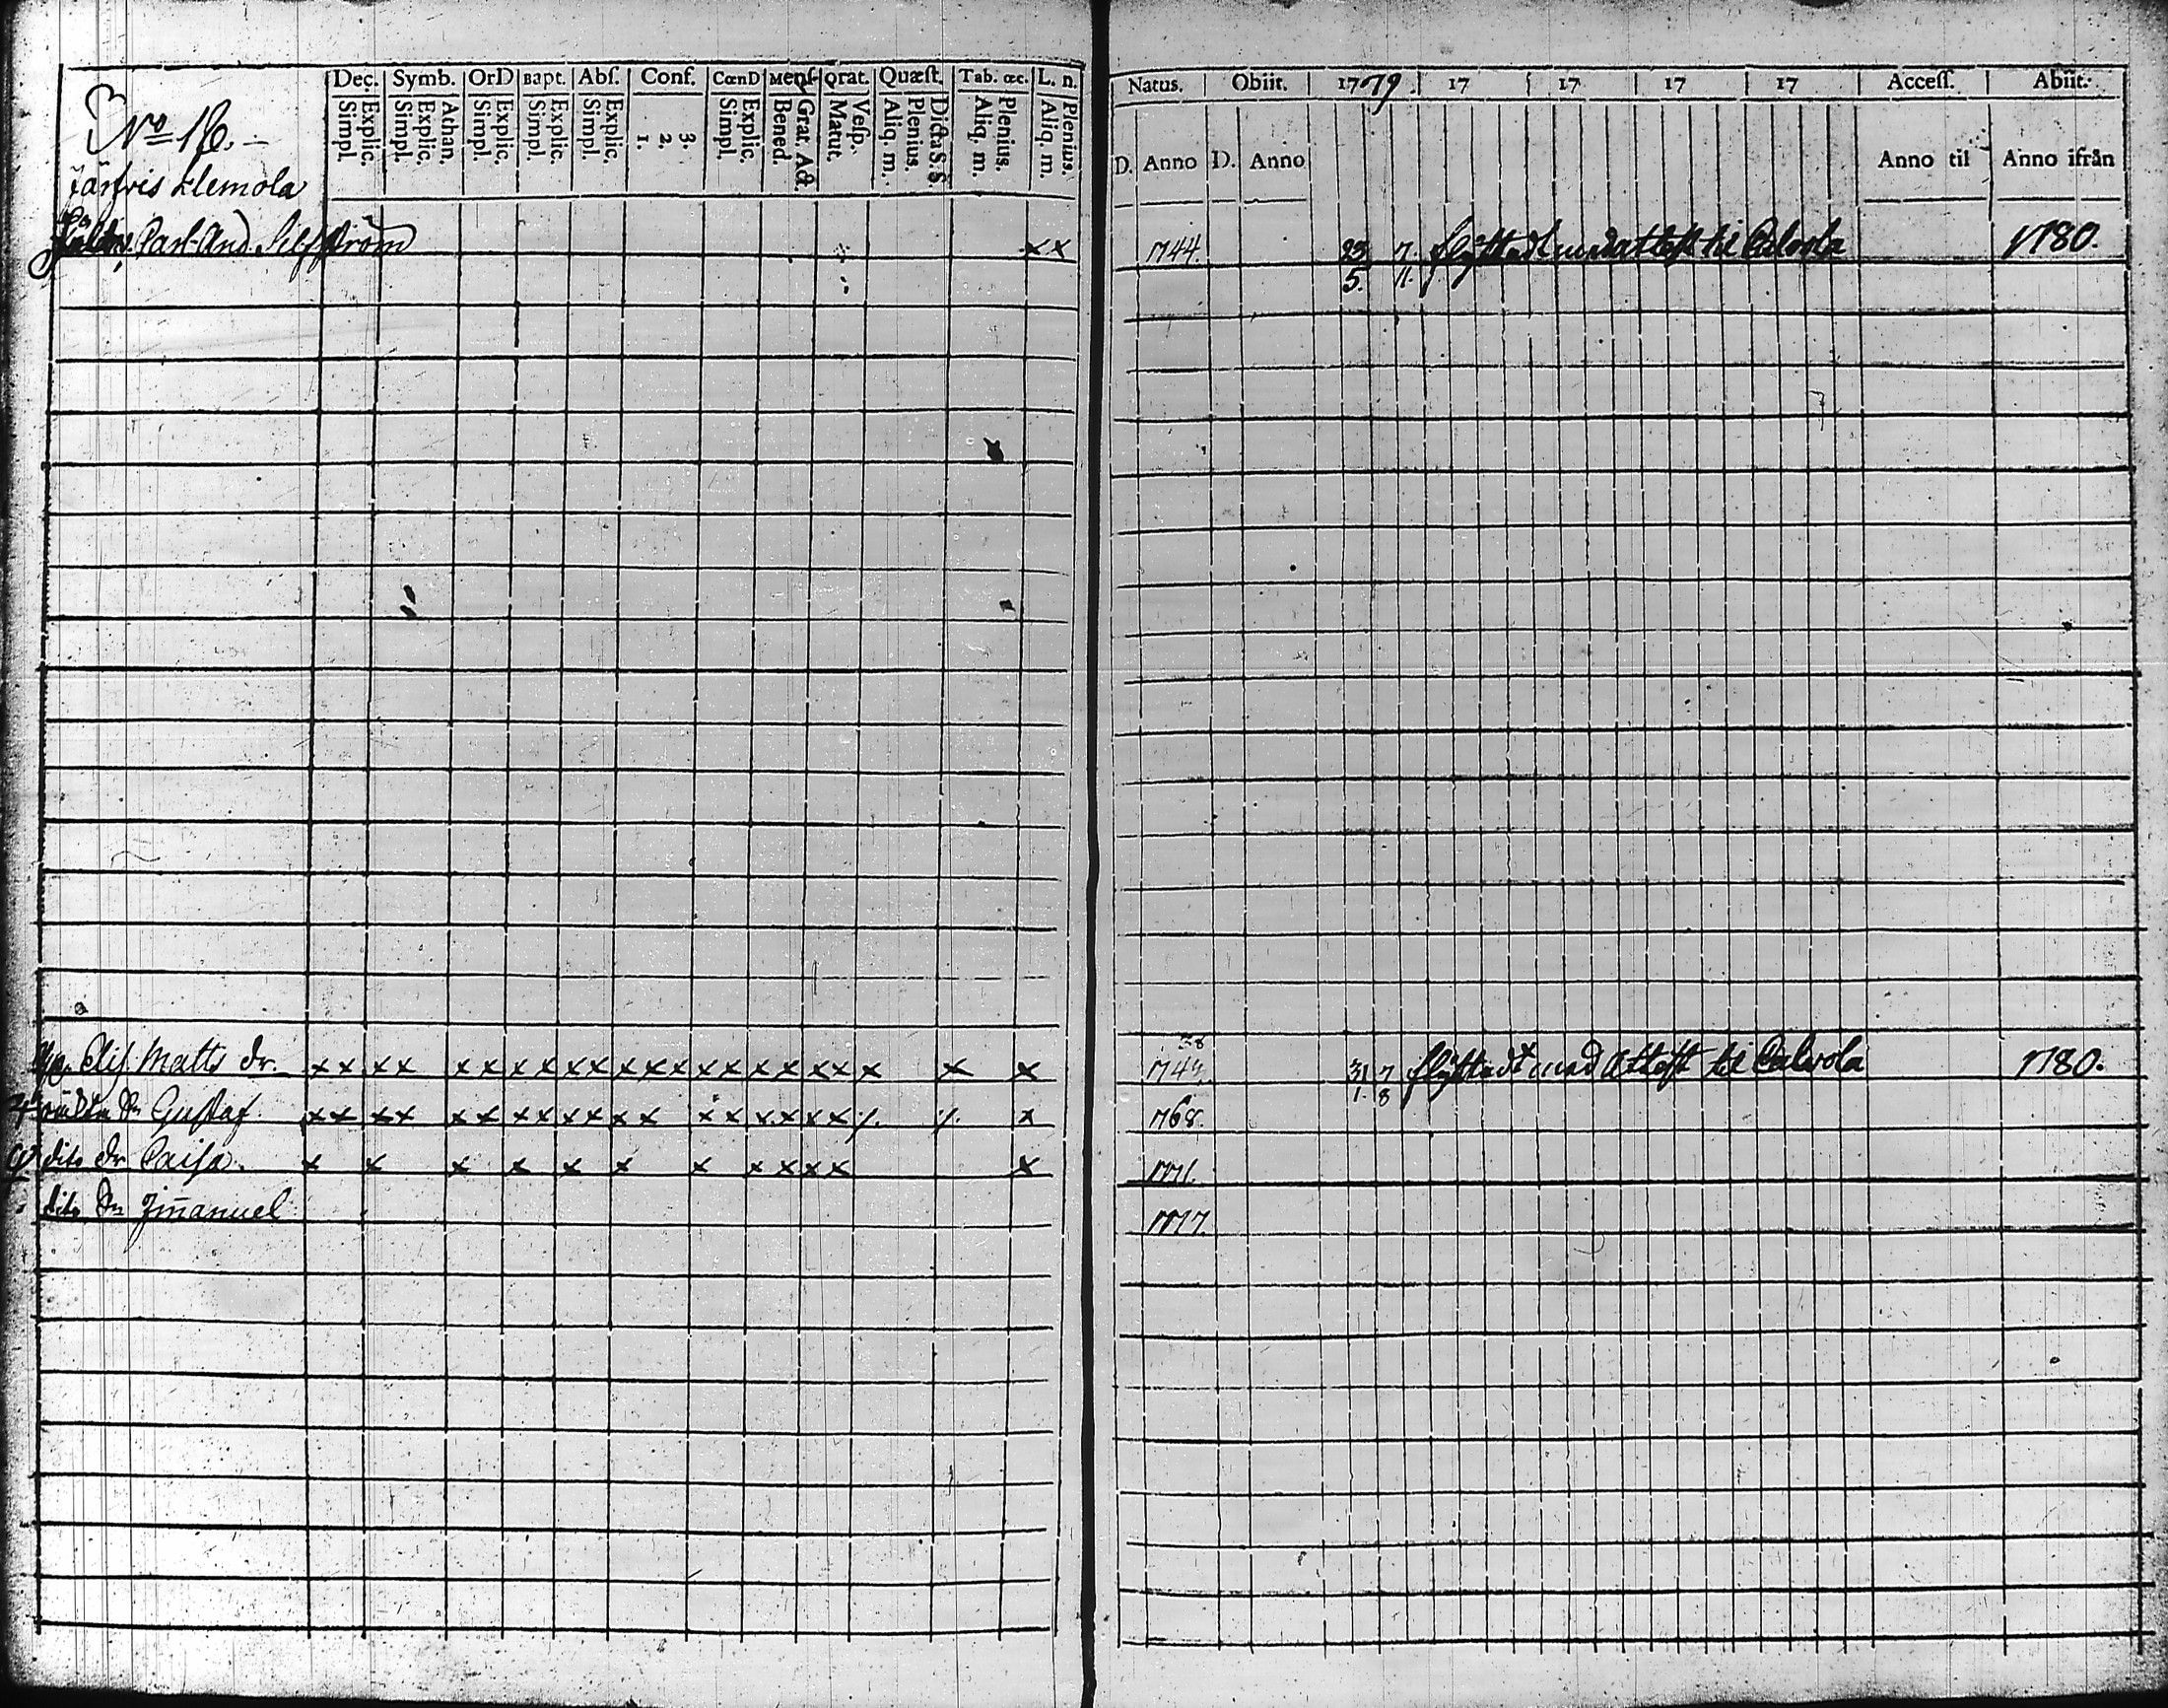 Dec. Symb. OrD Bapt. Abſ. Conf. CœnD Menſ. Orat. Quæſt. Tab. œc. L. n. Natus. Obiit. 1779 17 17 17 17 Acceſſ. Abiit.
Simpl. Explic. Simpl. Explic. Athan. Simpl. Explic. Simpl. Explic. Simpl. Explic. 1. 2. 3. Simpl. Explic. Bened. Grat. Act. Matut. Veſp. Aliq. m. Plenius. Dicta S. S. Aliq. m. Plenius. Aliq. m. Plenius. D. Anno D. Anno Anno til Anno ifrån
No 16.
Järfvis Klemola
Carl And. ström x x 1744. 23 5. 7 11. flyttadt med attest til Calvola 1780.
Elis. Matts dr. x x x x x x x x x x x x x x x x x x x x x x x 38 1742. 31 1. 7 8 flyttadt med Attest til Calvola 1780.
Gustaf x x x x x x x x x x x x x x x x x x ./. ./. x 1768.
dito dr Caisa. x x x x x x x x x x x x 1771.
dito Sn Im̄anuel 1777.